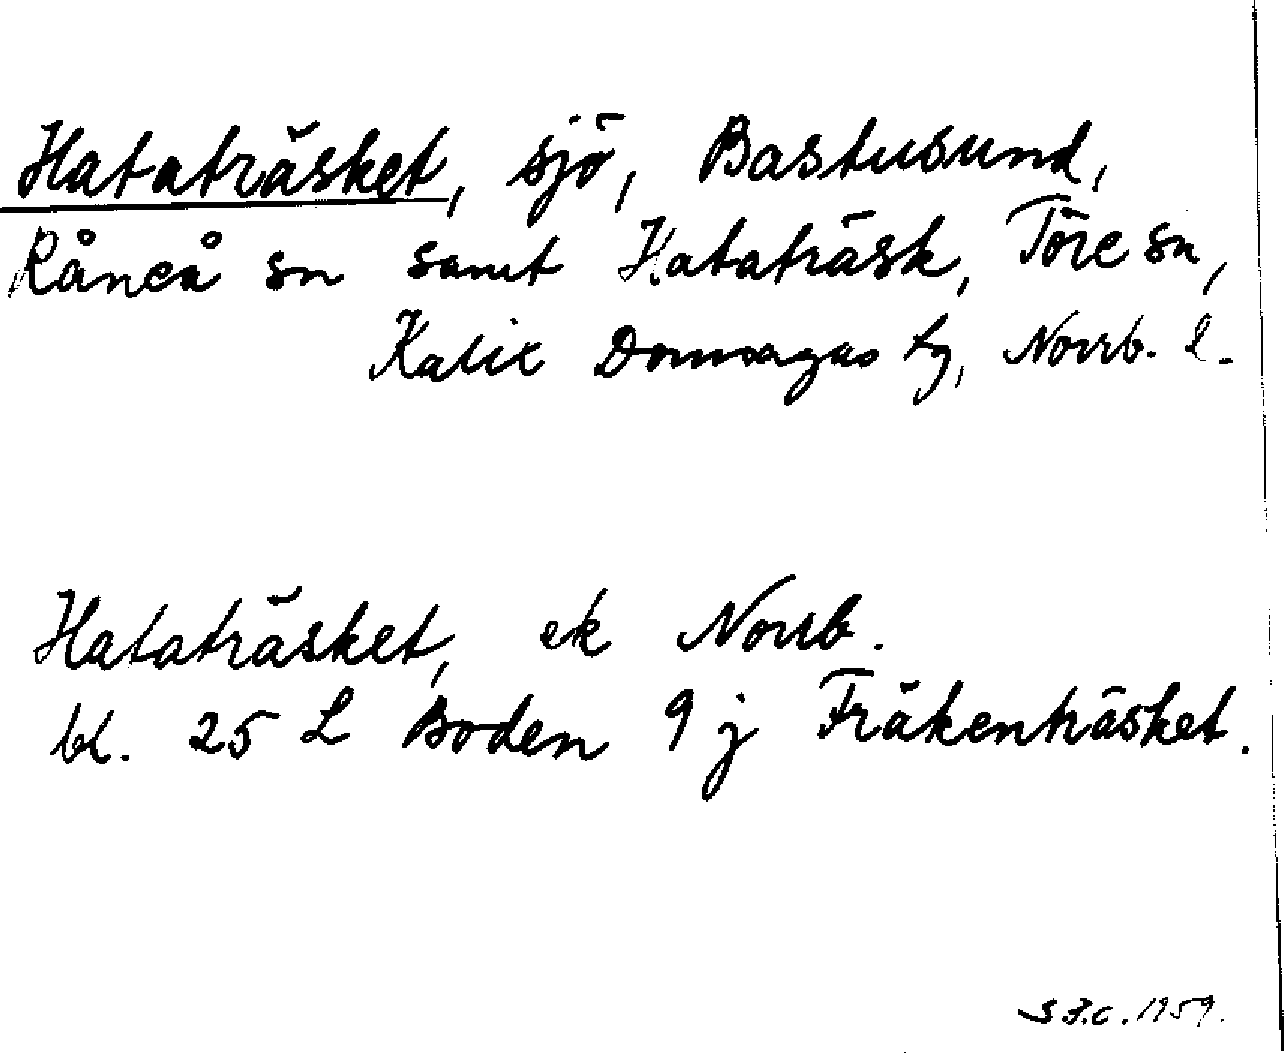 Hataträsket, sjö, Bastusund,
Råneå sn samt Hataträsk, Töre sn,
Kalix Domsagas lg, Norrb. l.
Hataträsket, ek Norrb.
bl. 25 L Boden 9 j Fräkenträsket.
S.F.C. 1959.